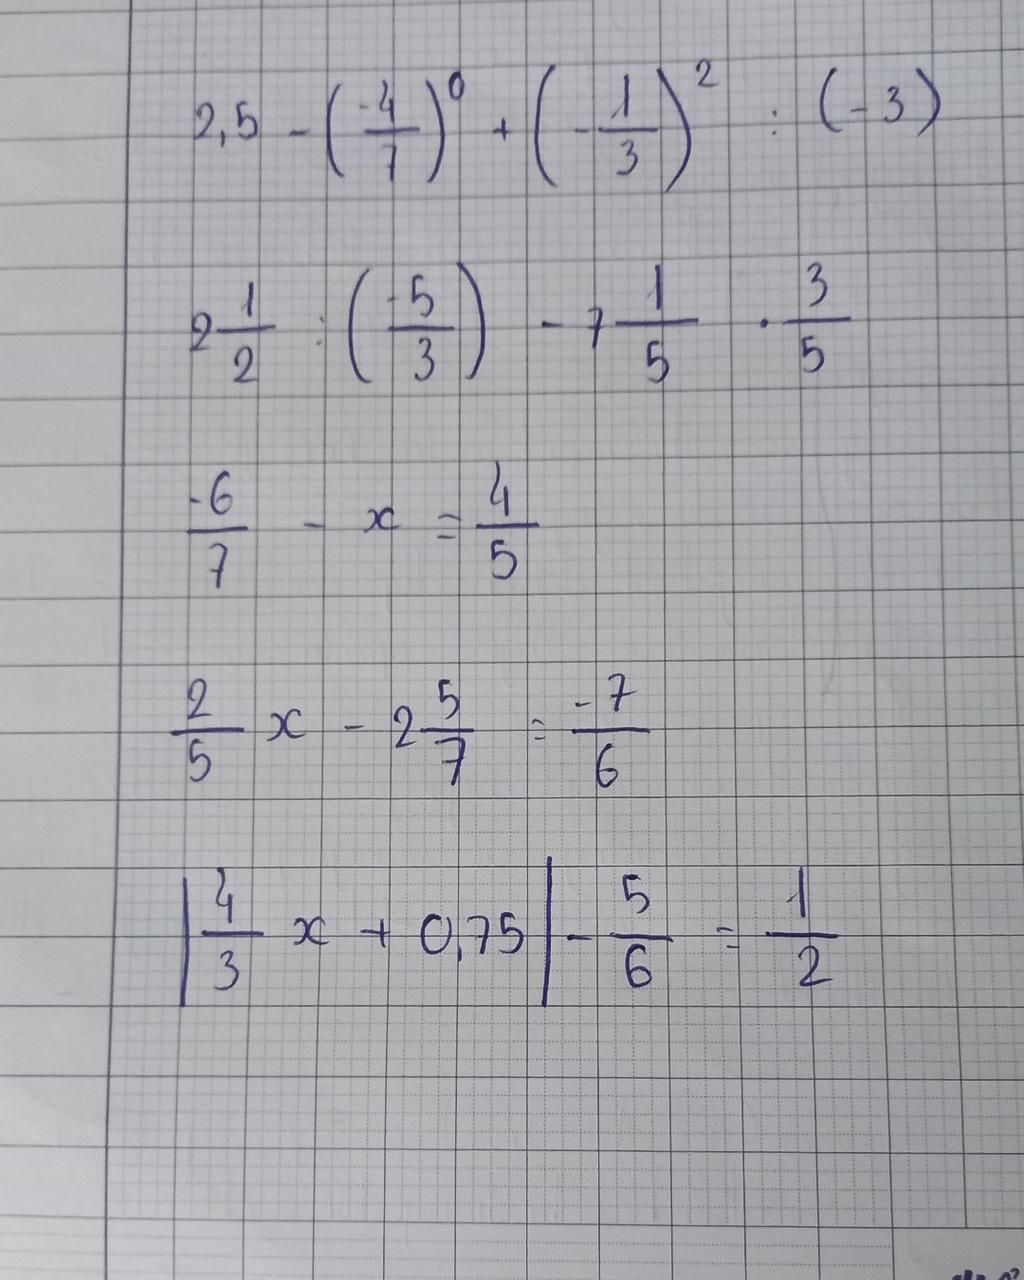 2,5 - (-4/7)^0 + (-1/3)^2 : (-3)
2 1/2 : (-5/3) - 7 1/5 · 3/5
-6/7 - x = 4/5
2/5 x - 2 5/7 = -7/6
|4/3 x + 0,75| - 5/6 = 1/2